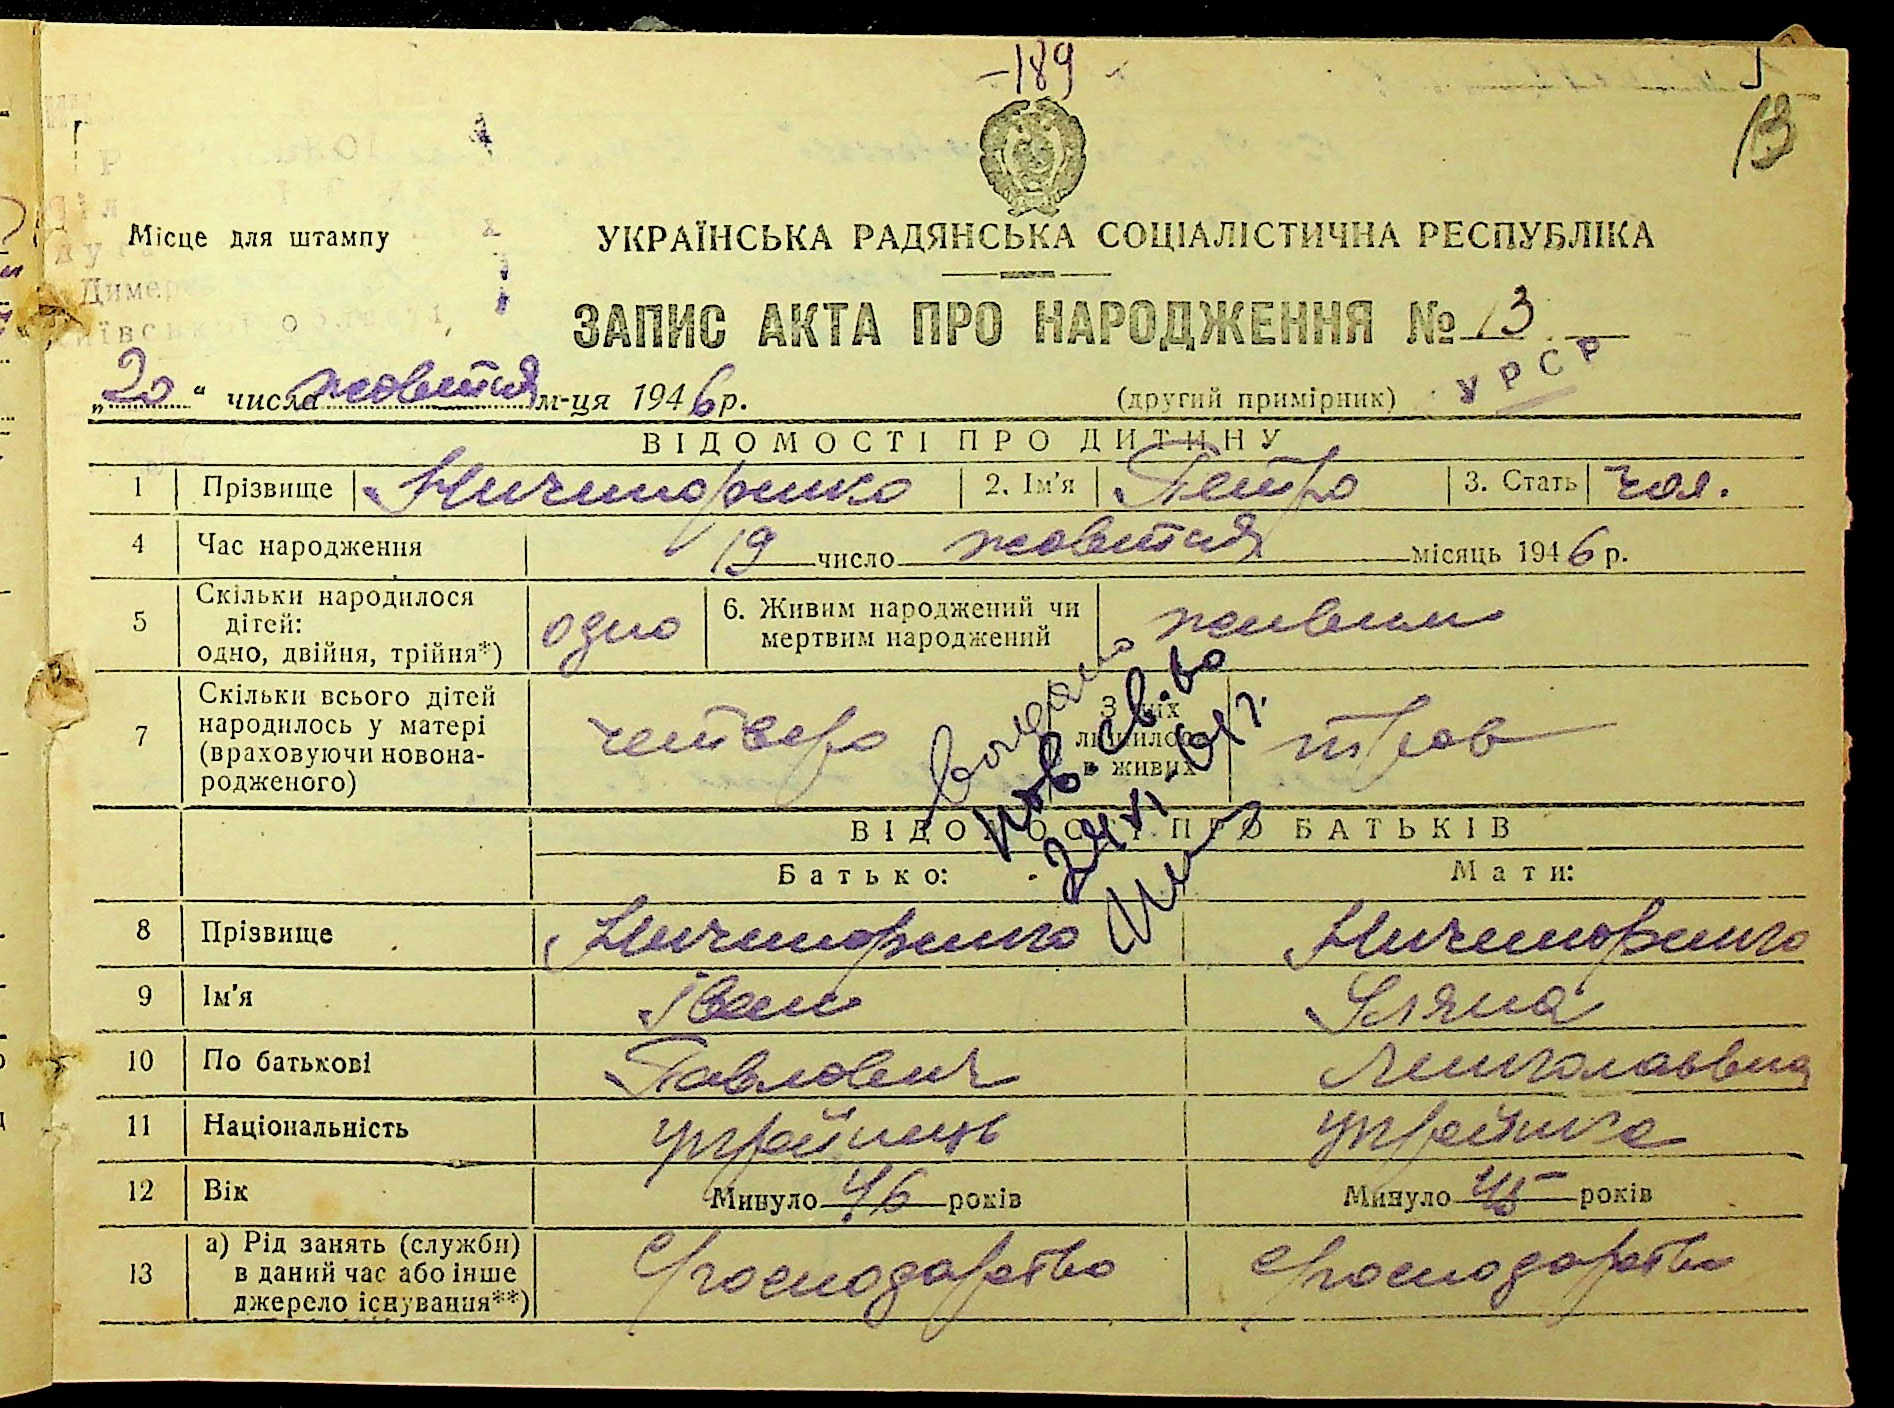 -189
13
Місце для штампу
УКРАЇНСЬКА РАДЯНСЬКА СОЦІАЛІСТИЧНА РЕСПУБЛІКА
Димер
ЗАПИС АКТА ПРО НАРОДЖЕННЯ № 13
„20“ числа жовтня м-ця 1946 р. (другий примірник) УРСР
ВІДОМОСТІ ПРО ДИТИНУ
1 Прізвище Ничипоренко 2. Ім'я Петро 3. Стать чол.
4 Час народження 19 число жовтня місяць 1946 р.
5 Скільки народилося дітей: одно, двійня, трійня*) одно 6. Живим народжений чи мертвим народжений живим
7 Скільки всього дітей народилось у матері (враховуючи новонародженого) четверо З них лишилось в живих троє
Видано
пов. св-во
ВІДОМОСТІ ПРО БАТЬКІВ
Батько: Мати:
8 Прізвище Ничипоренко Ничипоренко
9 Ім'я Іван Уляна
10 По батькові Павлович Миколаївна
11 Національність українець українка
12 Вік Минуло 46 років Минуло 45 років
13 а) Рід занять (служби) в даний час або інше джерело існування**) Господарство Господарство